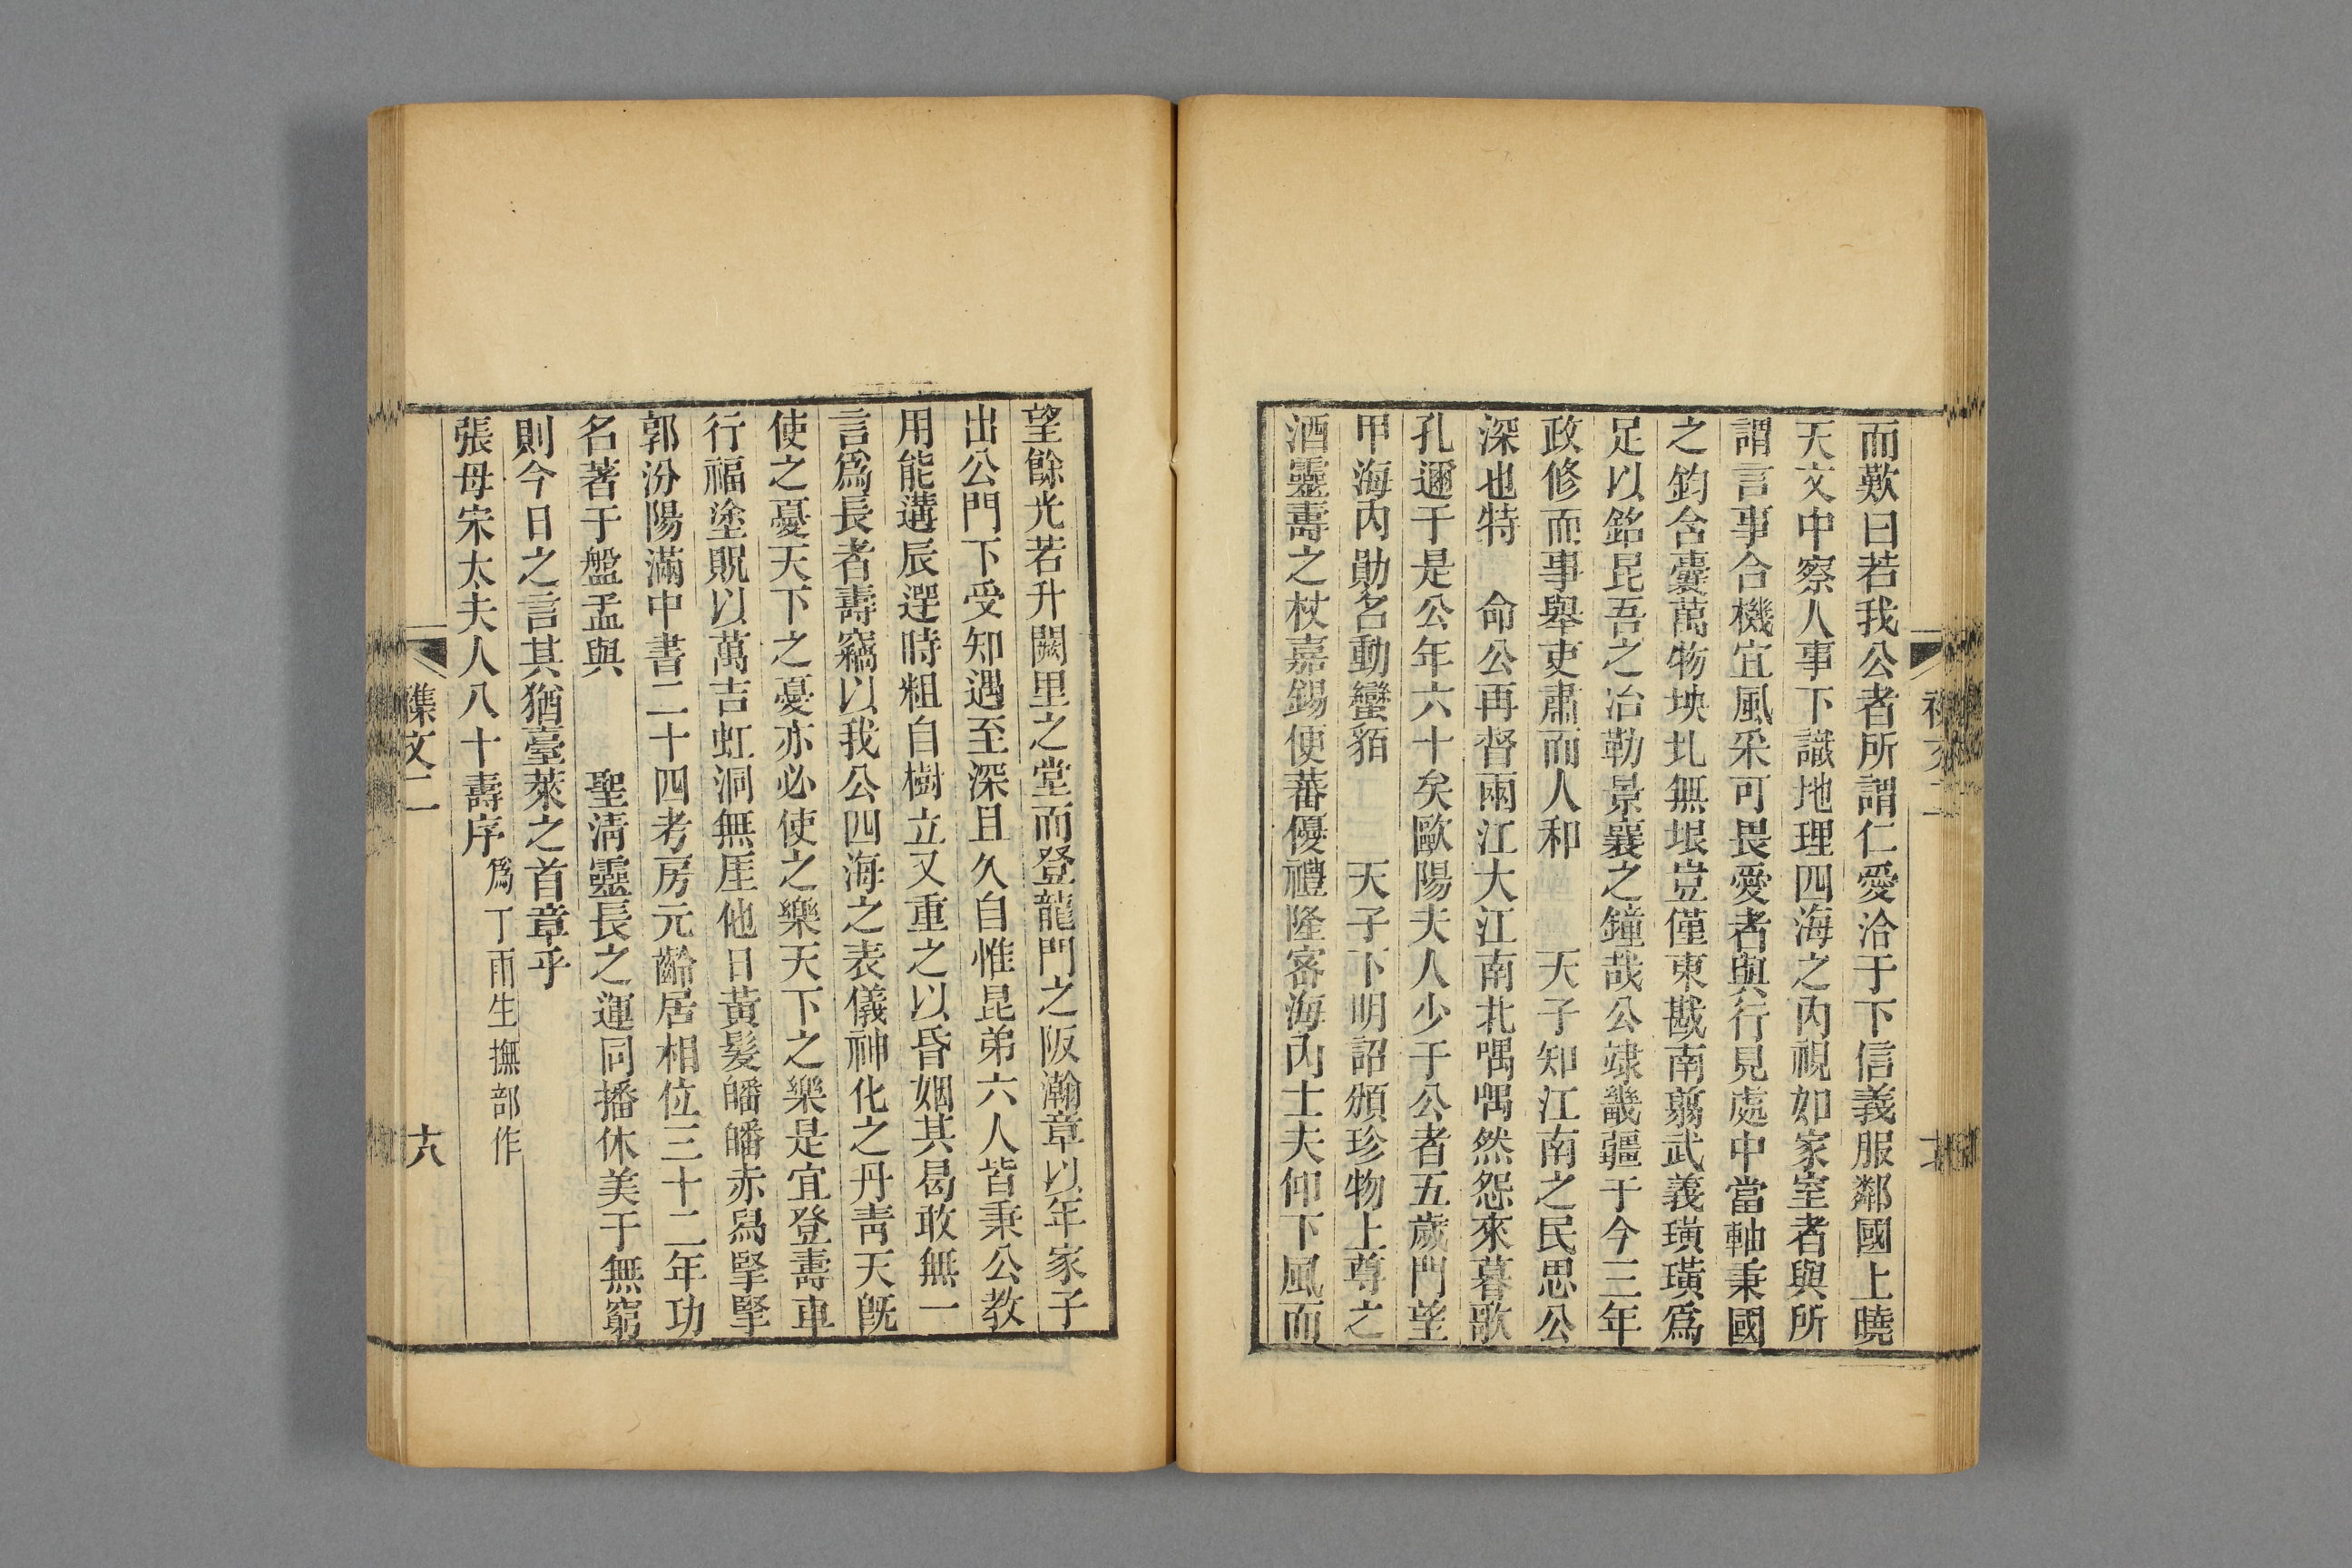 而歎曰若我公者所謂仁愛洽于下信義服鄰國上曉
天文中察人事下識地理四海之內視如家室者與所
謂言事合機宜風采可畏愛者與行見處中當軸秉國
之鈞含囊萬物坱圠無垠豈僅東戡南翦武義璜璜爲
足以銘昆吾之冶勒景襄之鐘哉公竦畿疆于今三年
政修而事舉吏肅而人和 天子知江南之民思公
深也特 命公再督兩江大江南北喁喁然怨來暮歌
孔邇于是公年六十矣歐陽夫人少于公者五歲門望
甲海內勛名動蠻貊 天子下明詔頒珍物上尊之
酒靈壽之杖嘉錫使蕃優禮隆密海內士夫仰下風而
望餘光若升闕里之堂而登龍門之阪瀚章以年家子
出公門下受知遇至深且久自惟昆弟六人皆秉公教
用能遘辰遝時粗自樹立又重之以昏姻其曷敢無一
言爲長者壽竊以我公四海之表儀神化之丹青天旣
使之憂天下之憂亦必使之樂天下之樂是宜登壽車
行福塗貺以萬吉虹洞無厓他日黃髮皤皤赤舄掔掔
郭汾陽滿中書二十四考房元齡居相位三十二年功
名著于盤盂與 聖淸靈長之運同播休美于無窮
則今日之言其猶臺萊之首章乎
張母宋太夫人八十壽序 爲丁雨生撫部作
襍文二 六